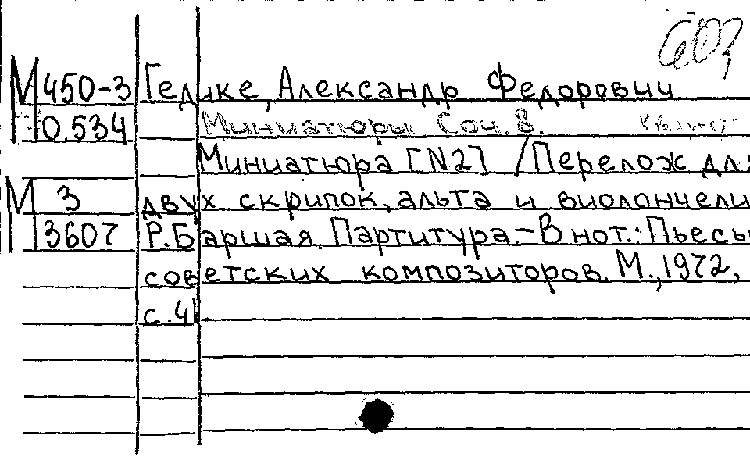 603
М 450-3 Гедике, Александр Федорович
10.534 Миниатюры Соч. 8.
Миниатюра [N2] /Перелож для
М 3 двух скрипок, альта и виолончели
3607 Р. Баршая. Партитура.-В нот.: Пьесы
советских композиторов. М., 1972,
с. 41